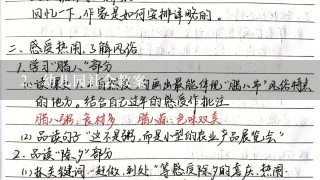 回忆一下，作家是如何安排详略的。
二、感受热闹，了解风俗
1. 学习"腊八"部分
(1) 读课文
的地方。结合自己过年的感受作批注
腊八粥：食材多 腊八蒜：色味双美
(2) 品读句子"这不是粥，而是小型的农业产品展览会"
2. 品读"除夕"部分
(1) 抓关键词，赶做、到处 等感受除夕的喜庆、热闹
2、幼儿园社会教案